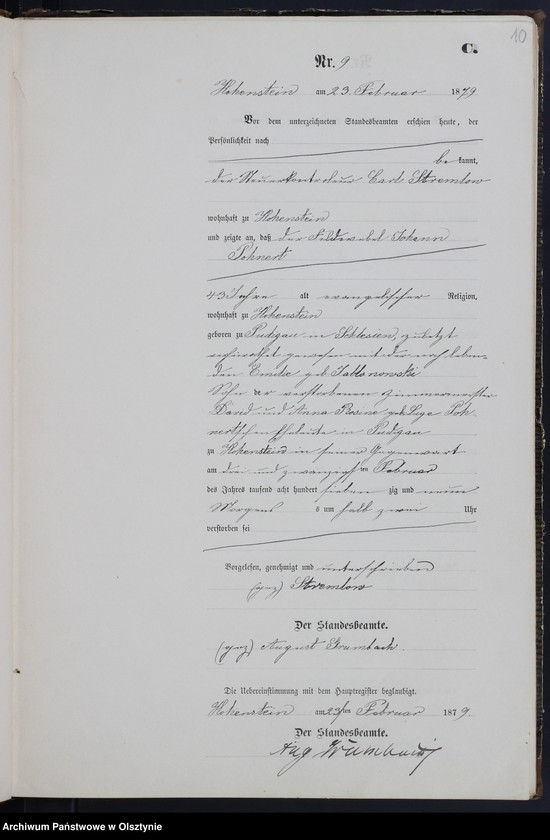 10
C.
Nr. 9
Hohenstein am 23. Februar 1879
Vor dem unterzeichneten Standesbeamten erschien heute, der
Persönlichkeit nach
be kannt,
der Steuerkontroleur Carl Stremlow
wohnhaft zu Hohenstein
und zeigte an, daß der Feldwebel Johann
Pohnert
43 Jahre alt evangelischer Religion,
wohnhaft zu Hohenstein
geboren zu Pudigau in Schlesien, zuletzt
verheirathet gewesen mit der noch leben-
den Emilie geb. Jablonowski
Sohn der verstorbenen Zimmermeister
David und Anna Rosine geb. Poh-
nertschen Eheleute in Pudigau
zu Hohenstein in seiner Gegenwart
am drei und zwanzigsten Februar
des Jahres tausend acht hundert sieben zig und neun
Morgens s um halb zwei Uhr
verstorben sei
Vorgelesen, genehmigt und unterschrieben
(gez) Stremlow
Der Standesbeamte.
(gez) August Grumbach
Die Uebereinstimmung mit dem Hauptregister beglaubigt.
Hohenstein am 23ten Februar 1879.
Der Standesbeamte.
Aug Grumbach
Archiwum Państwowe w Olsztynie